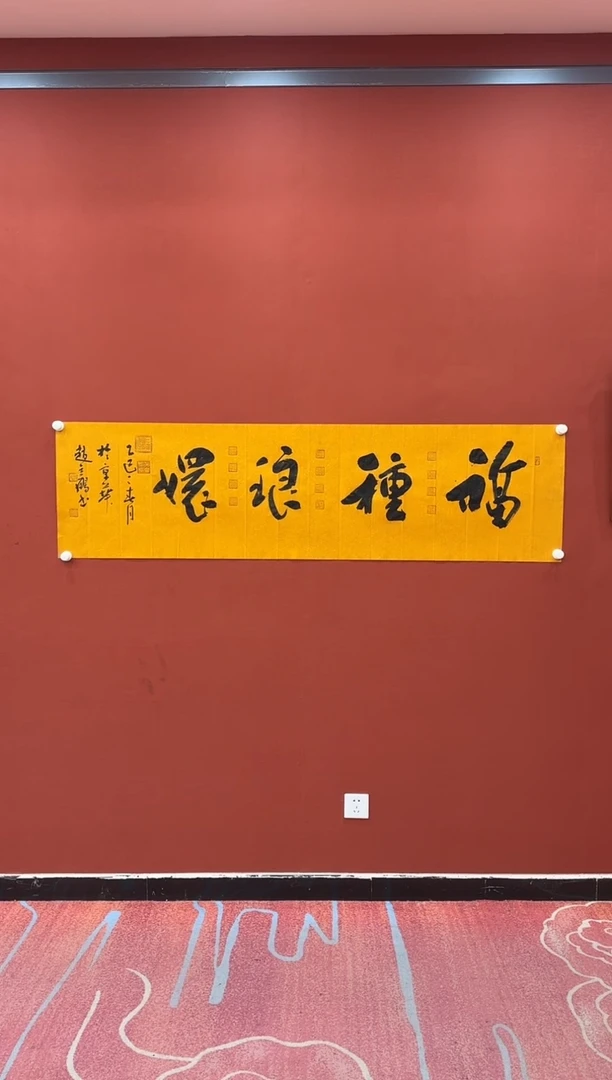 福種琅嬛
乙巳年春月
於京華
趙立鵬書